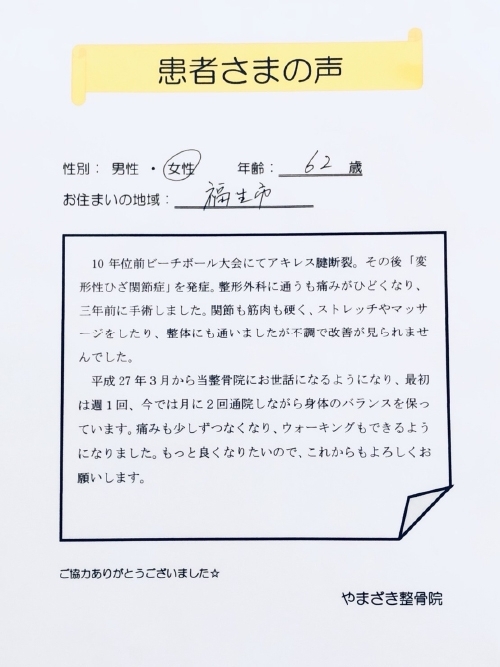 患者さまの声
性別： 男性 ・ 女性　年齢： 62 歳
お住まいの地域： 福生市
10 年位前ビーチボール大会にてアキレス腱断裂。その後「変
形性ひざ関節症」を発症。整形外科に通うも痛みがひどくなり、
三年前に手術しました。関節も筋肉も硬く、ストレッチやマッサ
ージをしたり、整体にも通いましたが不調で改善が見られませ
んでした。
平成 27 年 3 月から当整骨院にお世話になるようになり、最初
は週 1 回、今では月に 2 回通院しながら身体のバランスを保っ
ています。痛みも少しずつなくなり、ウォーキングもできるよう
になりました。もっと良くなりたいので、これからもよろしくお
願いします。
ご協力ありがとうございました☆
やまざき整骨院